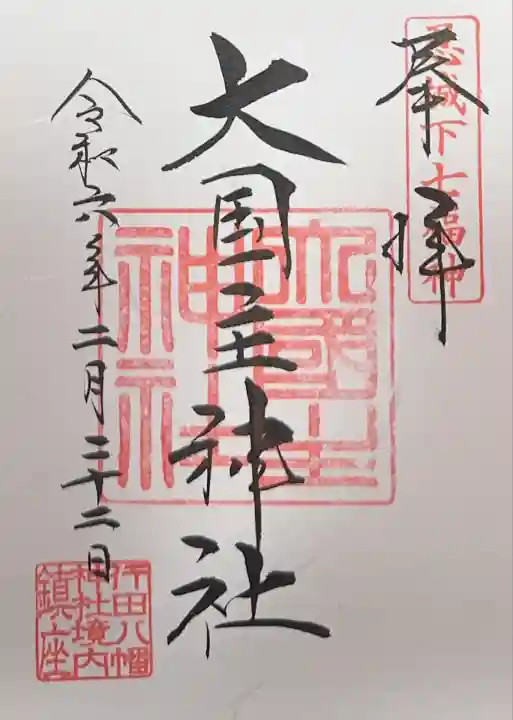 忍城下七福神
奉拝
大国主神社
大國主神社
令和六年二月二十二日
行田八幡
神社境内
鎮座